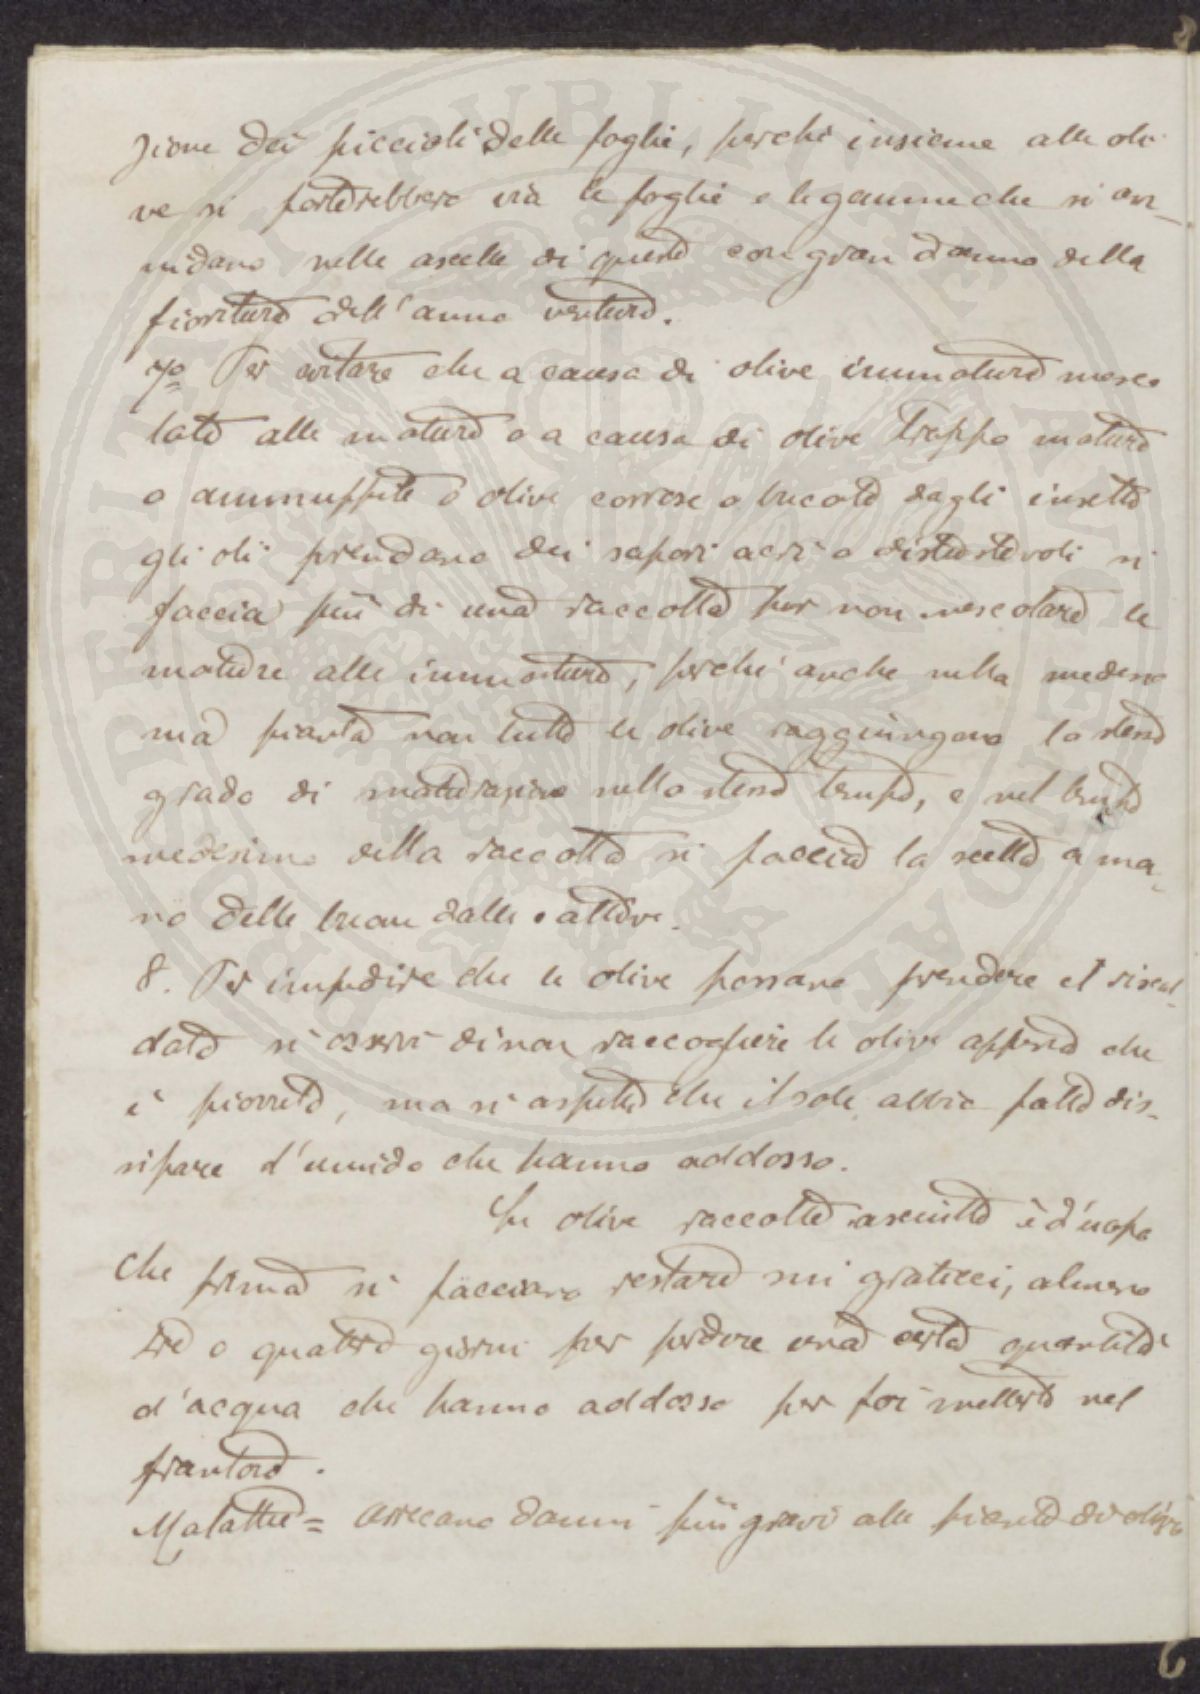 zione dei piccioli delle foglie, perché insieme alle oli
ve si porterebbero via le foglie e le gemme che si an-
nidano nelle ascelle di queste con gran danno della
fioritura dell'anno venturo.
7º Per evitare che a causa di olive immature mesco
late alle mature o a causa di olive troppo mature
o ammuffite o olive corrose o bucate dagli insetti
gli olii prendano dei sapori acri o disgustevoli si
faccia più di una raccolta per non mescolare le
mature alle immature, perché anche nella medesi
ma pianta non tutte le olive raggiungono lo stesso
grado di maturazione nello stesso tempo, e nel tempo
medesimo della raccolta si faccia la scelta a ma-
no delle buone dalle cattive.
8. Per impedire che le olive possano prendere il riscal-
dato si osservi di non raccogliere le olive appena che
è piovuto, ma si aspetti che il sole abbia fatto dis-
sipare l'umido che hanno addosso.
Le olive raccolte asciutte è d'uopo
che prima si facciano restare sui graticci, almeno
tre o quattro giorni per perdere una certa quantità
d'acqua che hanno addosso per poi metterle nel
frantoio.
Malattie = Arrecano danni più gravi alle piante di olivi
PERUSIA
6